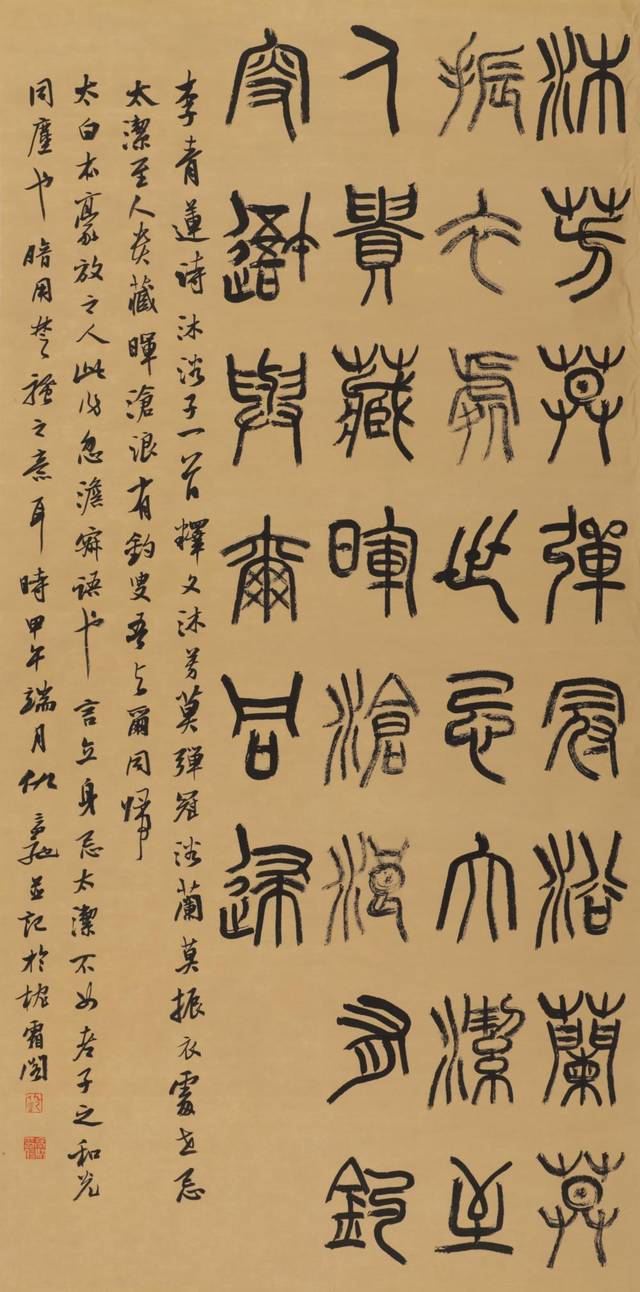 沐芳莫彈冠浴蘭莫
振衣處世忌大潔至
人貴藏暉滄浪有釣
叟吾與爾同歸
李青蓮詩沐浴子一首釋文沐芳莫彈冠浴蘭莫振衣處世忌
太潔至人貴藏暉滄浪有釣叟吾与爾同歸
太白本豪放之人此忽澹語也言立身忌太潔不如老子之和光
同塵也暗用楚騷之意耳時甲午端月並記於枕霜閣